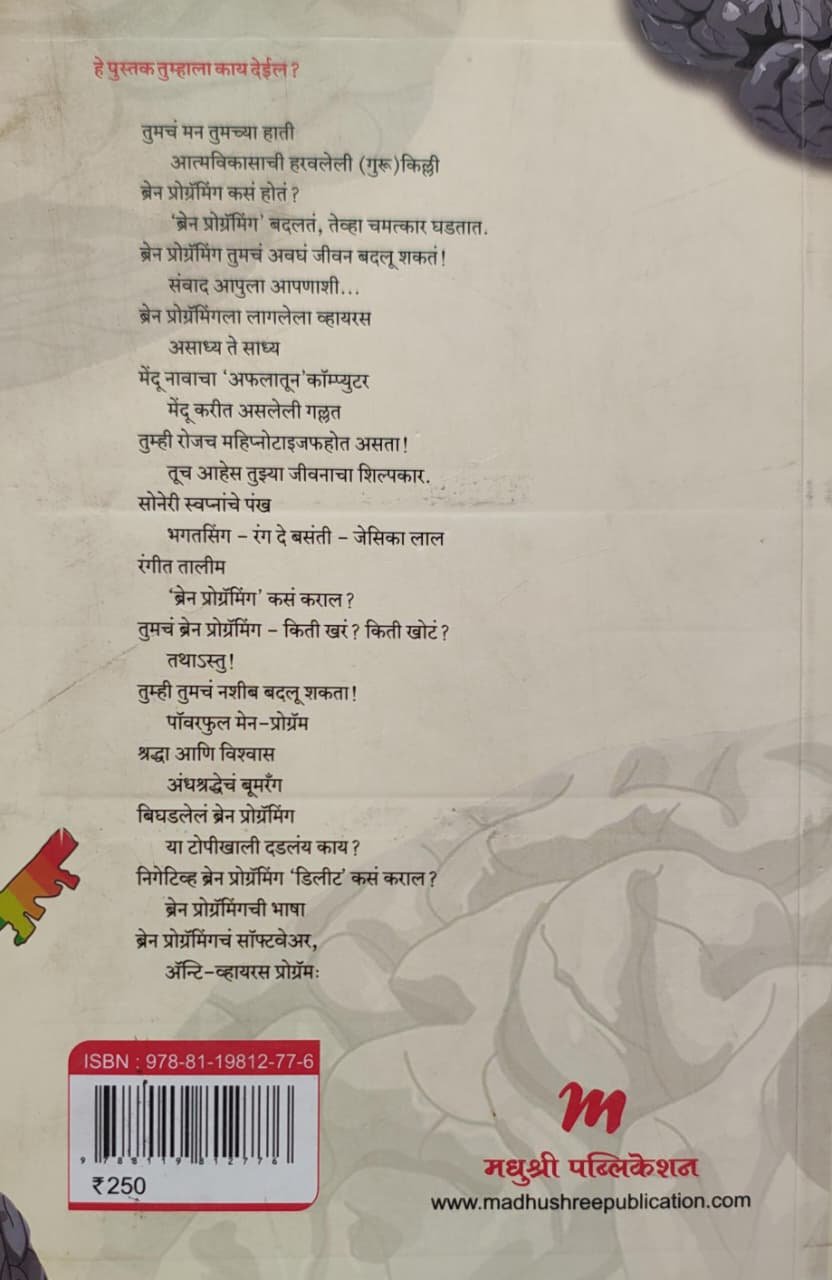 हे पुस्तक तुम्हाला काय देईल?
तुमचं मन तुमच्या हाती
आत्मविकासाची हरवलेली (गुरू)किल्ली
ब्रेन प्रोग्रॅमिंग कसं होतं?
'ब्रेन प्रोग्रॅमिंग' बदलतं, तेव्हा चमत्कार घडतात.
ब्रेन प्रोग्रॅमिंग तुमचं अवघं जीवन बदलू शकतं!
संवाद आपुला आपणाशी...
ब्रेन प्रोग्रॅमिंगला लागलेला व्हायरस
असाध्य ते साध्य
मेंदू नावाचा 'अफलातून'कॉम्प्युटर
मेंदू करीत असलेली गल्लत
तुम्ही रोजच महिप्नोटाइजफहोत असता!
तूच आहेस तुझ्या जीवनाचा शिल्पकार.
सोनेरी स्वप्नांचे पंख
भगतसिंग - रंग दे बसंती - जेसिका लाल
रंगीत तालीम
'ब्रेन प्रोग्रॅमिंग' कसं कराल?
तुमचं ब्रेन प्रोग्रॅमिंग - किती खरं? किती खोटं?
तथाऽस्तु!
तुम्ही तुमचं नशीब बदलू शकता!
पॉवरफुल मेन-प्रोग्रॅम
श्रद्धा आणि विश्वास
अंधश्रद्धेचं बूमरँग
बिघडलेलं ब्रेन प्रोग्रॅमिंग
या टोपीखाली दडलंय काय?
निगेटिव्ह ब्रेन प्रोग्रॅमिंग 'डिलीट' कसं कराल?
ब्रेन प्रोग्रॅमिंगची भाषा
ब्रेन प्रोग्रॅमिंगचं सॉफ्टवेअर,
ॲन्टि-व्हायरस प्रोग्रॅमः
ISBN : 978-81-19812-77-6
9 788119 812776
₹250
m
मधुश्री पब्लिकेशन
www.madhushreepublication.com